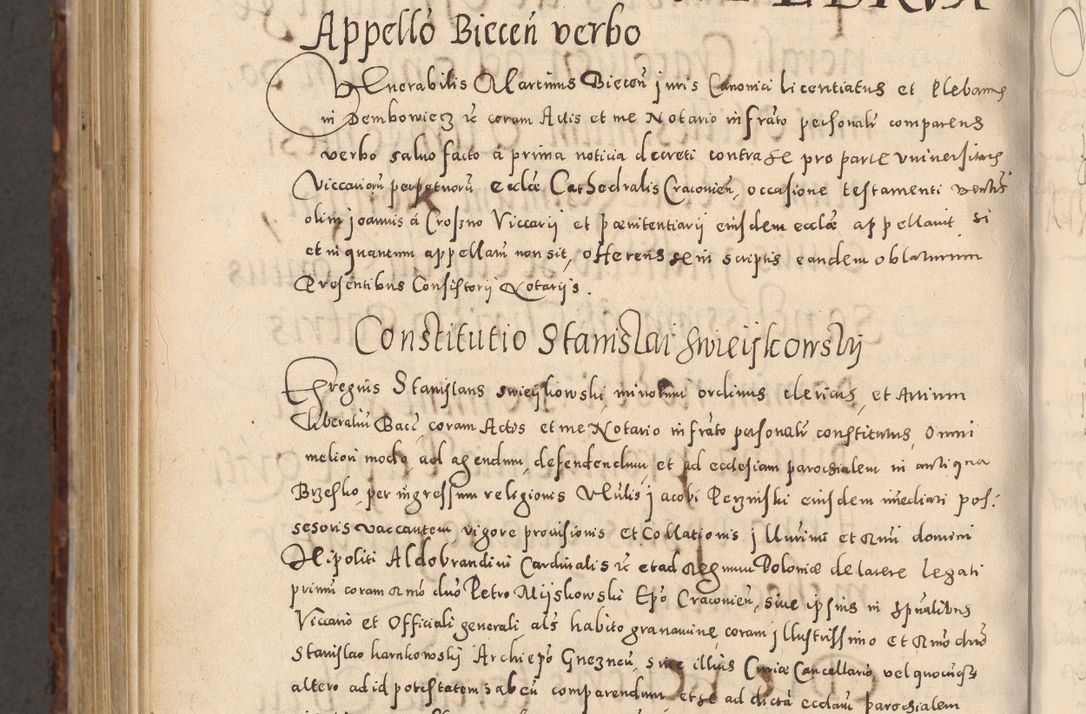 Appello Biecen̄ verbo
Venerabilis Martinus Biecen̄ juris Canonici licentiatus et Plebanus
in Dembowiecz etc coram Actis et me Notario infrāto personalr̄ comparens
verbo saluo facto á prima noticia decreti contra se pro parte vniuersitatis
Viccariorū perpetuorū ecclæ Cathedralis Cracouien̄, occasione testamenti
olim joannis á Croszno Viccarij et pœnitentiarij eiusdem ecclæ appellauit, si
et in quantum appellanū non sit, offerens se in scriptis eandem oblaturum
Presentibus Consistorij Notarijs.
Constitutio Stanislai Swieijkowskij
Egregius Stanislaus swieijkowski minorum ordinus clericus, et Artium
Liberaliū Bacć, coram Actis et me Notario infrāto personalr̄ constitutus, Omni
meliori modo ad agendum, defendendum et ad ecclesiam parochialem in antiqua
Brzesko, per ingressum religionis Vblis jacobi Perzinski eiusdem imediati pos:
sesoris vaccantem vigore prouisionis et Collationis jllustrimi et Rmi domini
Hipoliti Aldobrandini Cardinalis etc et ad Regnum Poloniæ de latere legati
primū coram Rmo dño Petro Mijskowski Epo Cracouien̄, siue ipsius in spūalibus
Viccario et Officiali generali als̄ habito grauamine coram jllustrissimo et Rmo dño
Stanislao karnkowskij Archiepo Gneznen̄, siue illius Curiæ Cancellario vel quocunqȝ
altero ad id potestatem habeñ comparendum et se ad dictā ecclam̄ parochialem